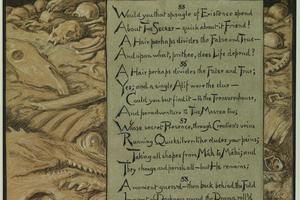 Would you that spangle of Existence spend
About The Secret — quick about it Friend!
A Hair perhaps divides the False and True —
And upon what, prithee, does Life depend?
56
A Hair perhaps divides the False and True;
Yes; and a single Alif were the clue —
Could you but find it — to the Treasure-house,
And peradventure to The Master too;
57
Whose secret Presence, through Creation's veins
Running Quicksilver-like eludes your pains;
Taking all shapes from Máh to Máhi; and
They change and perish all — but He remains;
58
A moment guess'd — then back behind the Fold